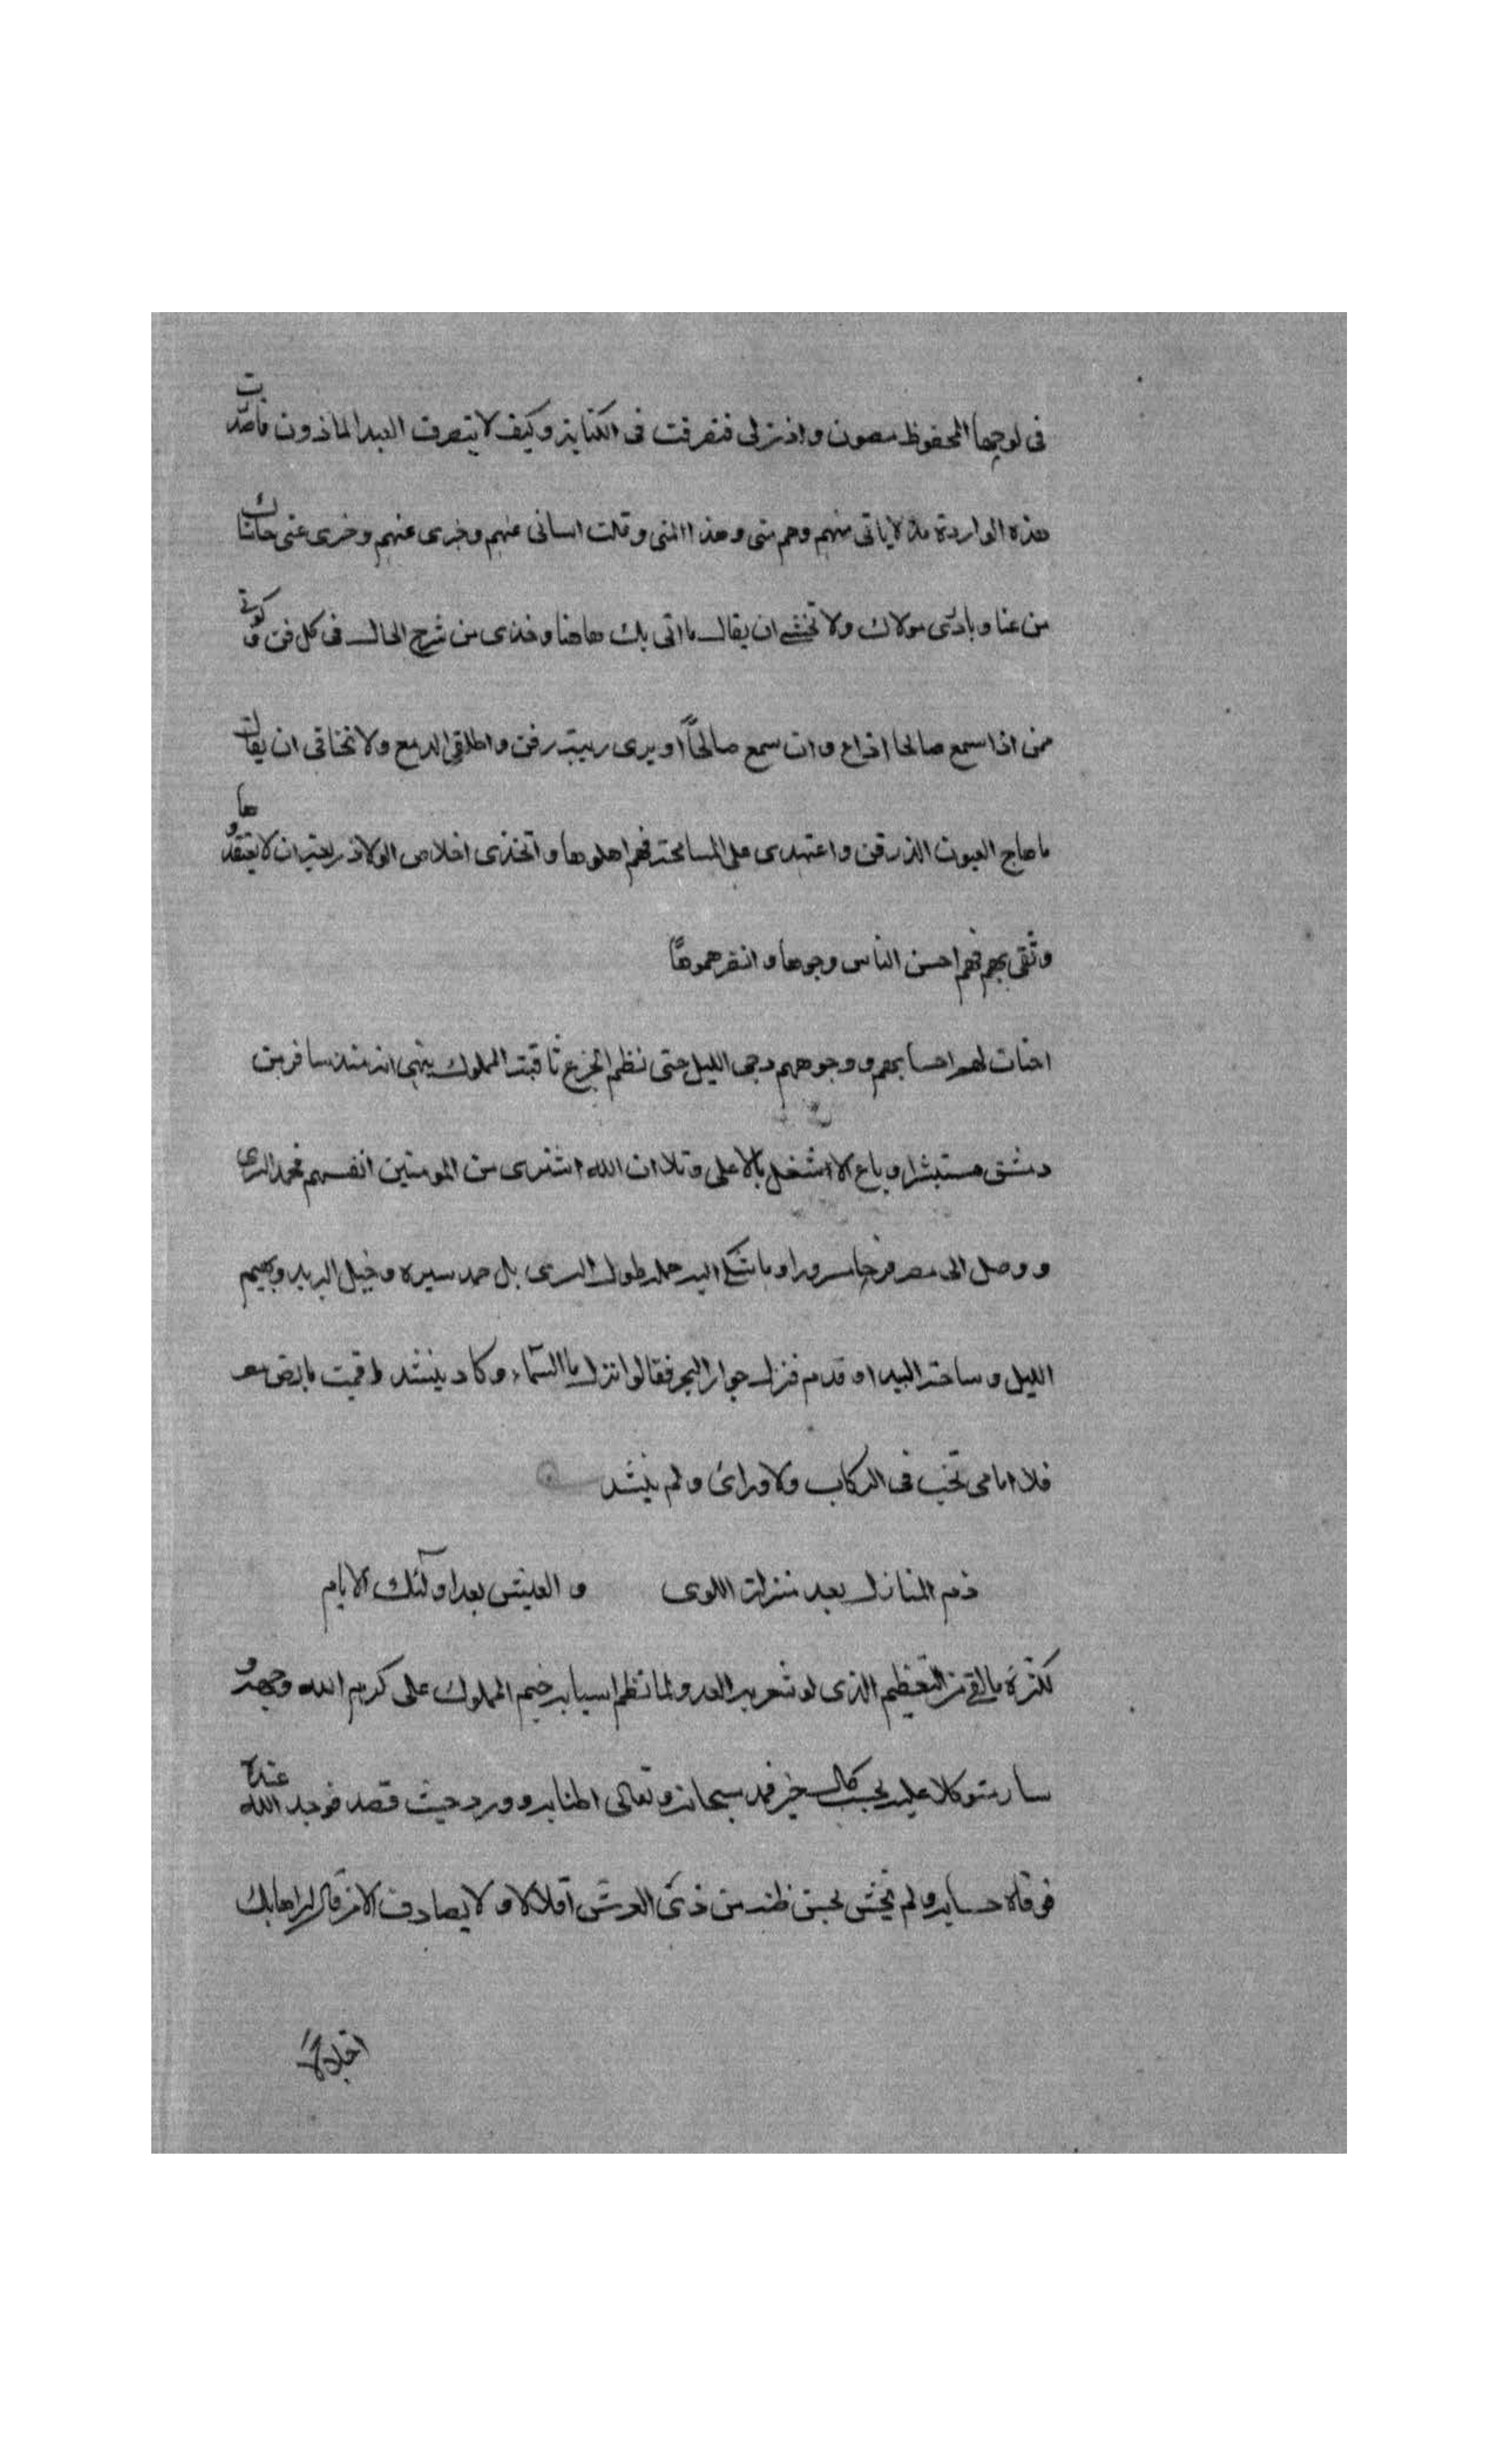 فى لوحها المحفوظ مصون واذن لى فتصرفت فى الكتابة وكيف لا يتصرف العبد الماذون فاصدّت
هذه الواردة لاياتى منهم وهم منى وهذا المنى وقلت اسانى عنهم وخبرى عنهم وخرى عنى
من عنا وبادى مولاك ولا تخشى ان يقال ما اتى بك هاهنا وخذى من شرح الحال فى كل فن
ممن اذا سمع صالحا اذاع وان سمع صالحاً او يرى ريبة رفن واطلقى الدمع ولا تخافى ان يقال
ما هاج العيون الذرفن واعتمدى على المسامحة فهم اهلوها واتخذى اخلاص الولا ذريعة ان لا يعتقدوها
وثقى بهم فهم احسن الناس وجوها وانضرهموها
اضات لهم احسابهم ووجوههم دجى الليل حتى نظم الجزع ثاقبه المملوك ينهى انه منذ سافر من
دمشق مستبشرا وباع الاشغل بالاعلى وتلا ان الله اشترى من المومنين انفسهم فحمد السرى
ووصل الى مصر فرحا مسرورا وما شكى اليه جمله طول السرى بل حمد سيره وخيل البريد وبهيم
الليل وساحة البيدا وقدم فنزل جوار البحر فقالوا انزل يا ماالسّماء وكاد ينشد اقمت بارض مصر
فلا امامى تخب فى الركاب ولا وراى ولم ينشد
ذم المنازل بعد منزلة اللوى والعيش بعد اولئك الايام
لكثرة ما لقى من التعظيم الذى لو شعر به العدو لما نظم اسبابه خيم المملوك على كريم الله وجهه و
سار متوكلا عليه بحسب كل خير فمد سبحانه وتعالى اطنابه وورد حيث قصد فوجد الله عنده
فوفاه حسابه ولم يخش لحسن ظنه من ذى العرش اقلالا ولا يصادف الا من قال له راهابك
اجلالاً